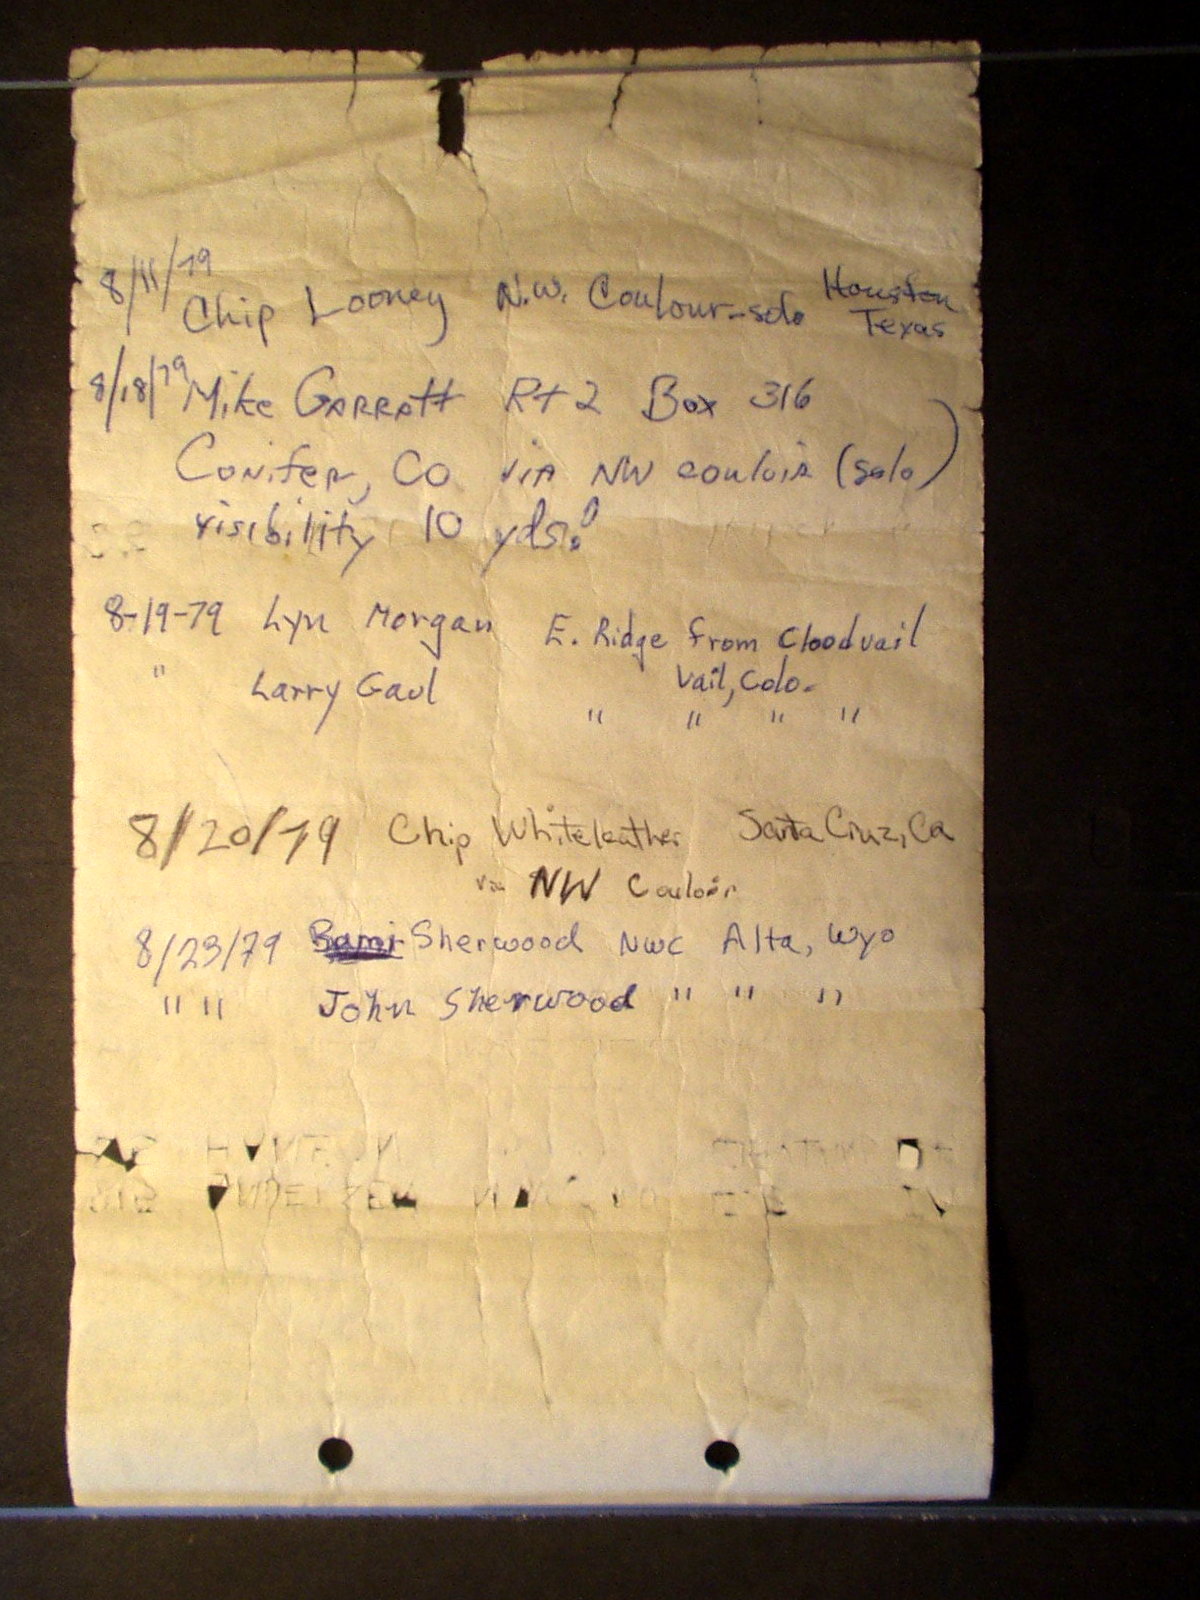 8/11/79
Chip Looney N.W. Coulour-solo Houston Texas
8/18/79 Mike Garratt Rt 2 Box 316
Conifer, CO via NW couloir (solo)
visibility 10 yds!
8-19-79 Lyn Morgan E. Ridge from Cloodvail
" Larry Gaul Vail, Colo.
" " " "
8/20/79 Chip Whiteleather Santa Cruz, Ca
via NW Couloir
8/23/79 Sherwood NWC Alta, Wyo
" " John Sherwood " " "